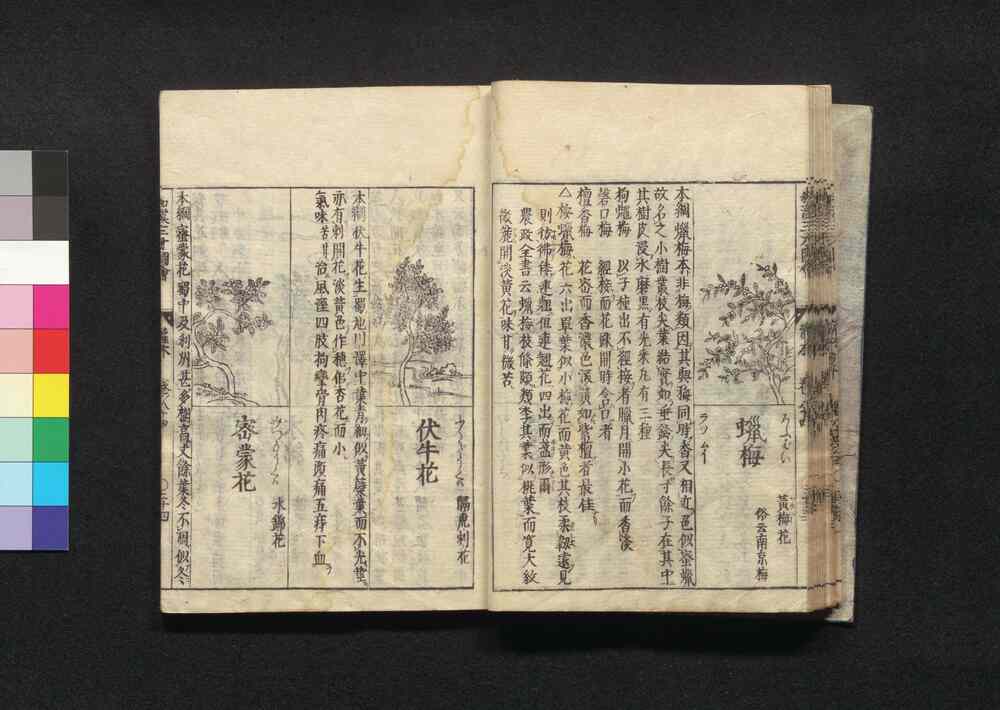 蠟梅
らふばい
ラツ ムイ
黃梅花
俗云南京梅
本綱蠟梅本非梅類因其與梅同時香又相近色似蜜蠟
故名之小樹叢枝尖葉結實如垂鈴尖長寸餘子在其中
其樹皮浸水磨黑有光采凡有三種
狗蠅梅 以子種出不經接者臘月開小花而香淡
磬口梅 經接而花疎開時含口者
檀香梅 花密而香濃色深黃如紫檀者最佳
△按蠟梅花六出單葉似小梅花而黃色其枝柔韌遠見
則彷彿徳連翹但連翹花四出而
農政全書云蠟梅枝條頗類李其葉似桃葉而寬大紋
微麄開淡黃花味甘微苦
伏牛花
隔虎刺花
本綱伏牛花生蜀地川澤中葉青細似黃蘗葉而不光莖
亦有刺開花淡黃色作穗似杏花而小
氣味苦甘治風濕四肢拘攣骨肉疼痛頭痛五痔下血
密蒙花
水錦花
本綱密蒙花蜀中及利州甚多樹高丈餘葉冬不凋似冬
和漢三才圖會